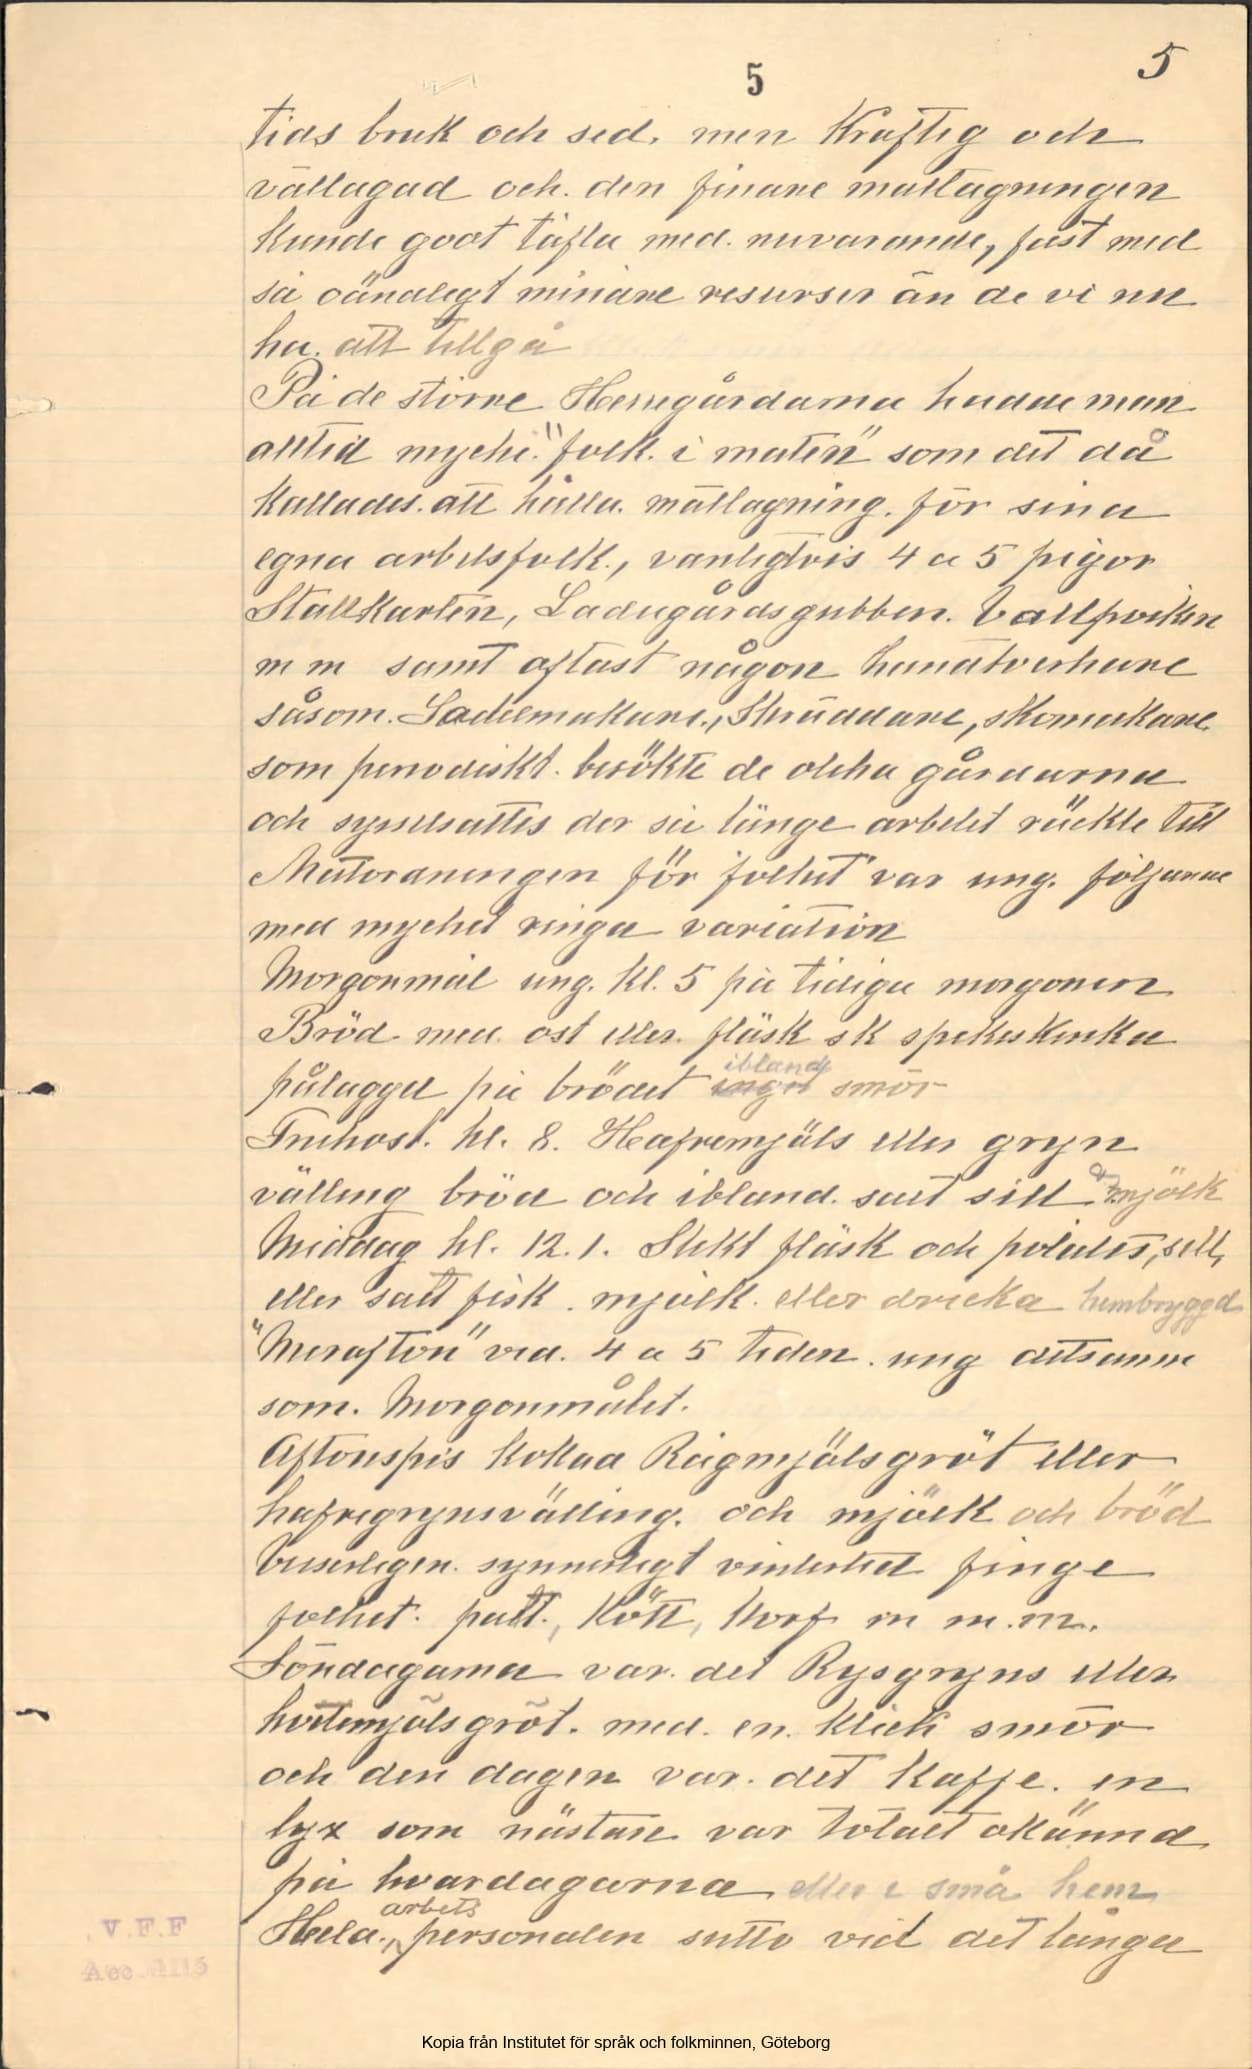 5
5
tids bruk och sed. men Kraftig och
vällagad och den finare matlagningen
kunde godt täfla med nuvarande, fast med
så oändligt mindre resurser än de vi nu
ha att tillgå
På de större Herregårdarna hade man
alltid mycke "folk i maten" som det då
kallades. att hålla matlagning för sina
egna arbetsfolk, vanligtvis 4 a 5 pigor
Stallkarlen, Ladugårdsgubben. Vallpoiken
m m samt oftast någon handtverkare
såsom. Sadelmakare, Skräddare, skomakare
som periodiskt besökte de olika gårdarna
och sysselsattes der så länge arbetet räckte till
Matordningen för folket var ung. följande
med mycket ringa variation
Morgonmål ung. kl. 5 på tidiga morgonen
Bröd med ost eller fläsk s k spekeskinka
ibland
pålaggd på brödet inget smör
Frukost. kl. 8. Hafremjöls eller gryn
välling bröd och ibland salt sill o mjölk
Middag kl. 12.1. Stekt fläsk och potates, sill,
eller salt fisk. mjölk. eller dricka hembryggd
"Merafton" vid 4 a 5 tiden. ung detsamma
som. Morgonmålet.
Aftonspis kokad Rågmjölsgröt eller
hafregrynsvälling. och mjölk och bröd
Visserligen synnerligt vintertid finge
folket. palt, Kött, Korf m m.m.
Söndagarna var det Rysgryns eller
hvitemjölsgröt. med en klick smör
och den dagen var det Kaffe. en
lyx som nästan var totalt okännd
på hvardagarna eller i små hem
arbets
Hela personalen sutto vid det långa
V.F.F
Acc
Kopia från Institutet för språk och folkminnen, Göteborg